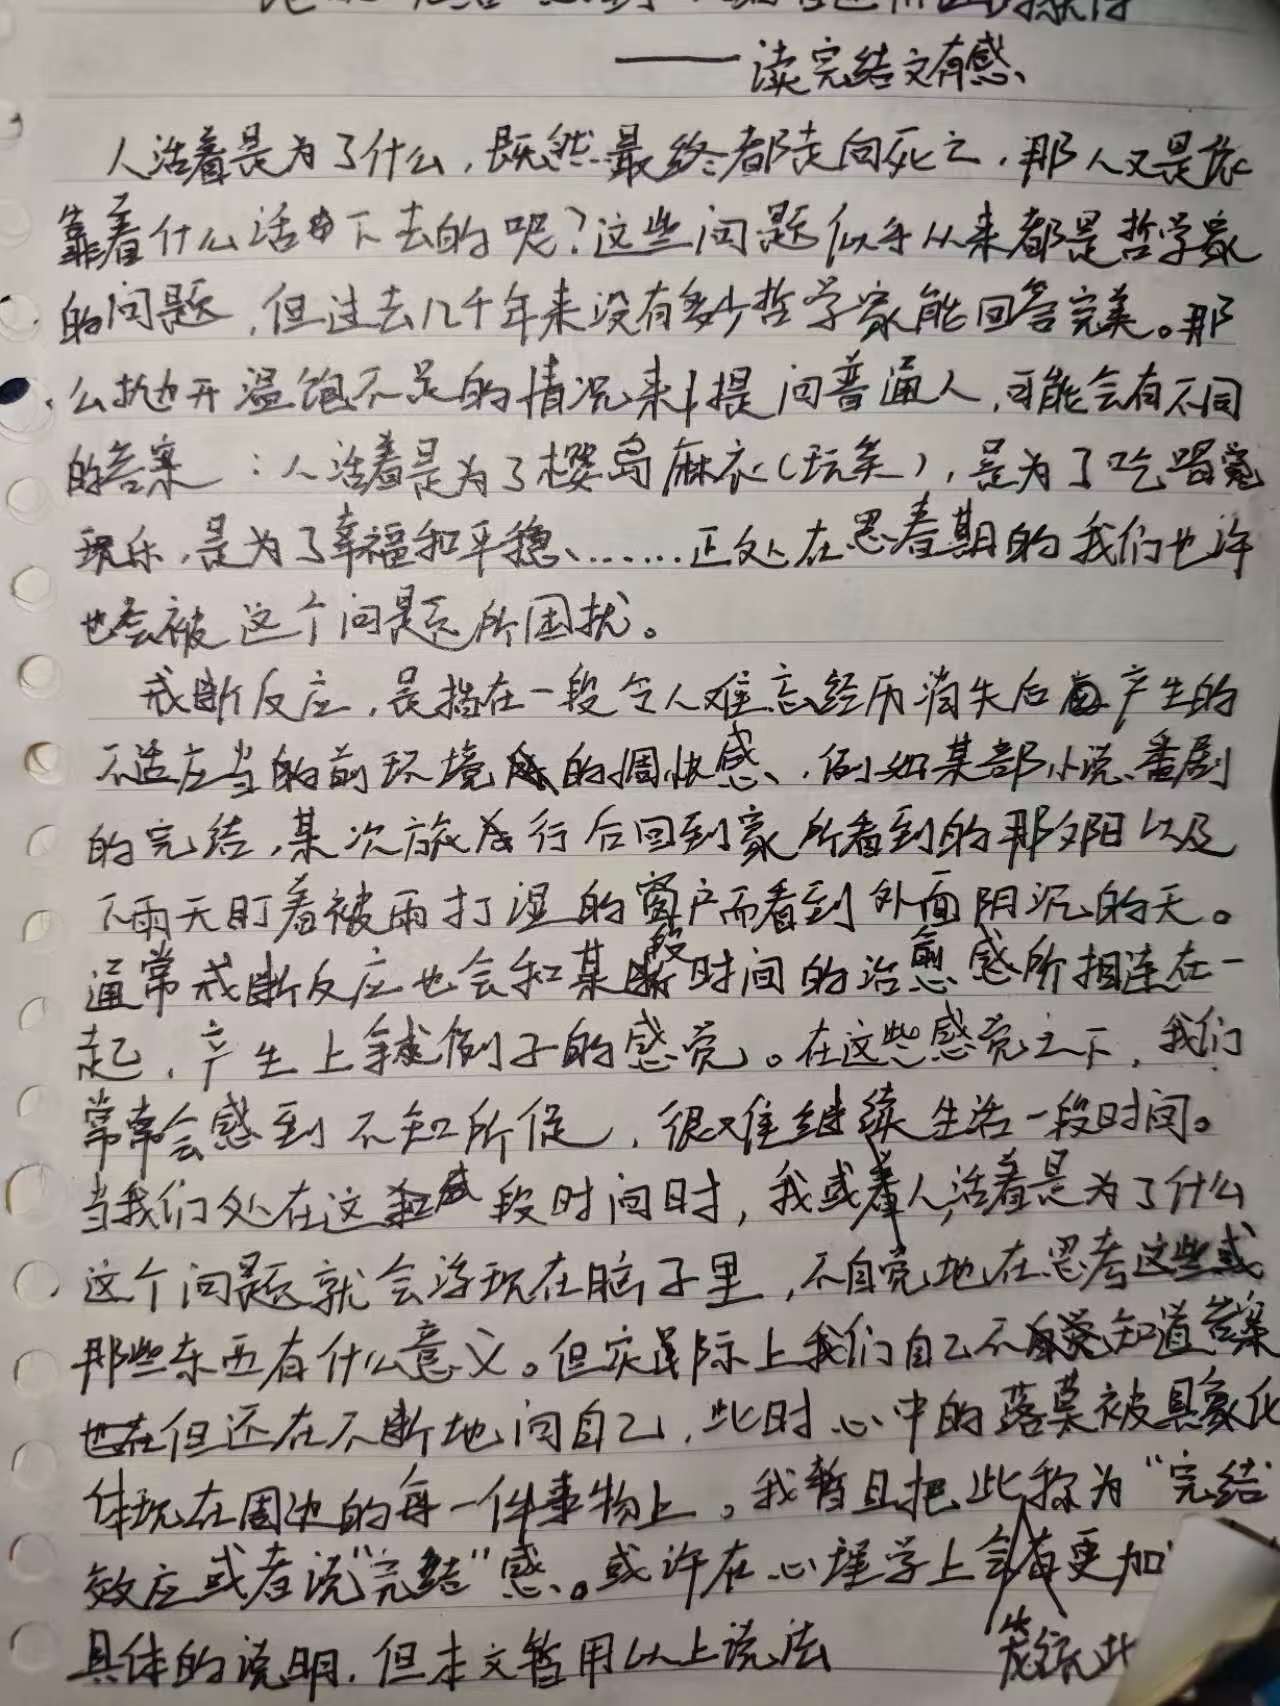 ——读完结文有感
人活着是为了什么,既然最终都走向死亡,那人又是依
靠着什么活下去的呢?这些问题似乎从来都是哲学家
的问题,但过去几千年来没有多少哲学家能回答完美。那
么抛开温饱不足的情况来提问普通人,可能会有不同
的答案:人活着是为了樱岛麻衣(玩笑),是为了吃喝
玩乐,是为了幸福和平稳、……正处在思春期的我们也许
也会被这个问题所困扰。
戒断反应,是指在一段令人难忘经历消失后产生的
不适应当的前环境的惆怅感、例如某部小说、番剧
的完结,某次旅行后回到家所看到的那夕阳以及
下雨天盯着被雨打湿的窗户而看到外面阴沉的天。
通常戒断反应也会和某段时间的治愈感所相连在一
起,产生上述例子的感觉。在这些感觉之下,我们
常常会感到不知所促,很难继续生活一段时间。
当我们处在这段时间时,我或着人活着是为了什么
这个问题就会浮现在脑子里,不自觉地在思考这些或
那些东西有什么意义。但实际上我们自己不知道答案
但还在不断地问自己,此时心中的落莫被具象化
体现在周边的每一件事物上。我暂且把此称为“完结
效应或者说“完结”感。或许在心理学上会有更加
具体的说明,但本文暂用以上说法